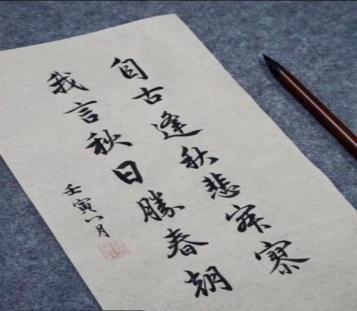 自古逢秋悲寂寥
我言秋日勝春朝
壬寅八月